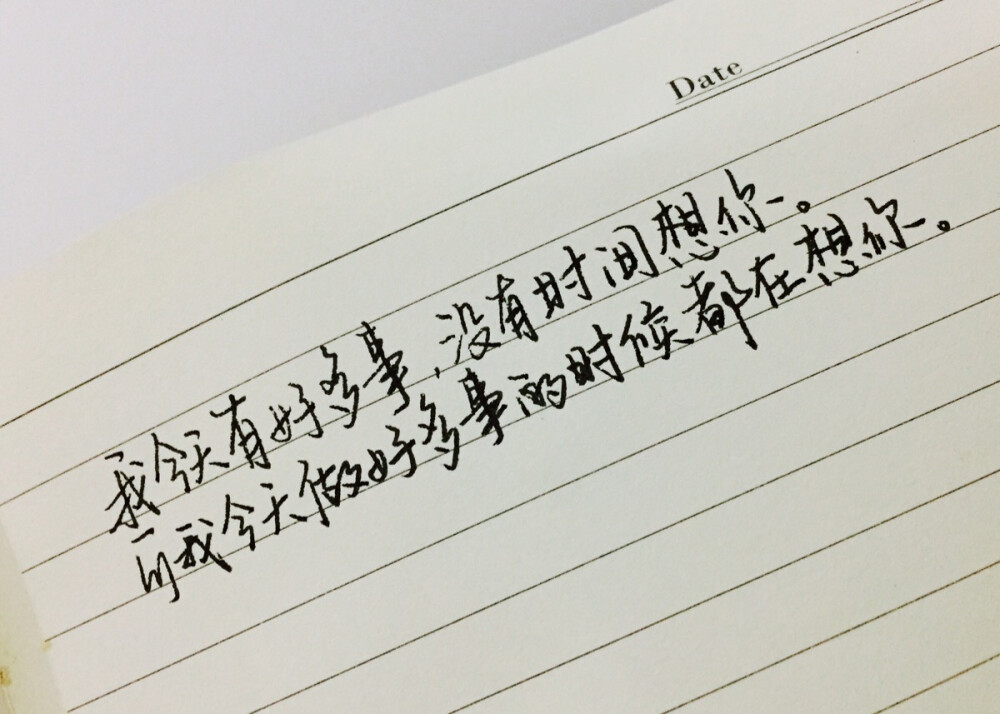 Date
我今天有好多事,没有时间想你。
可我今天做好多事的时候都在想你。